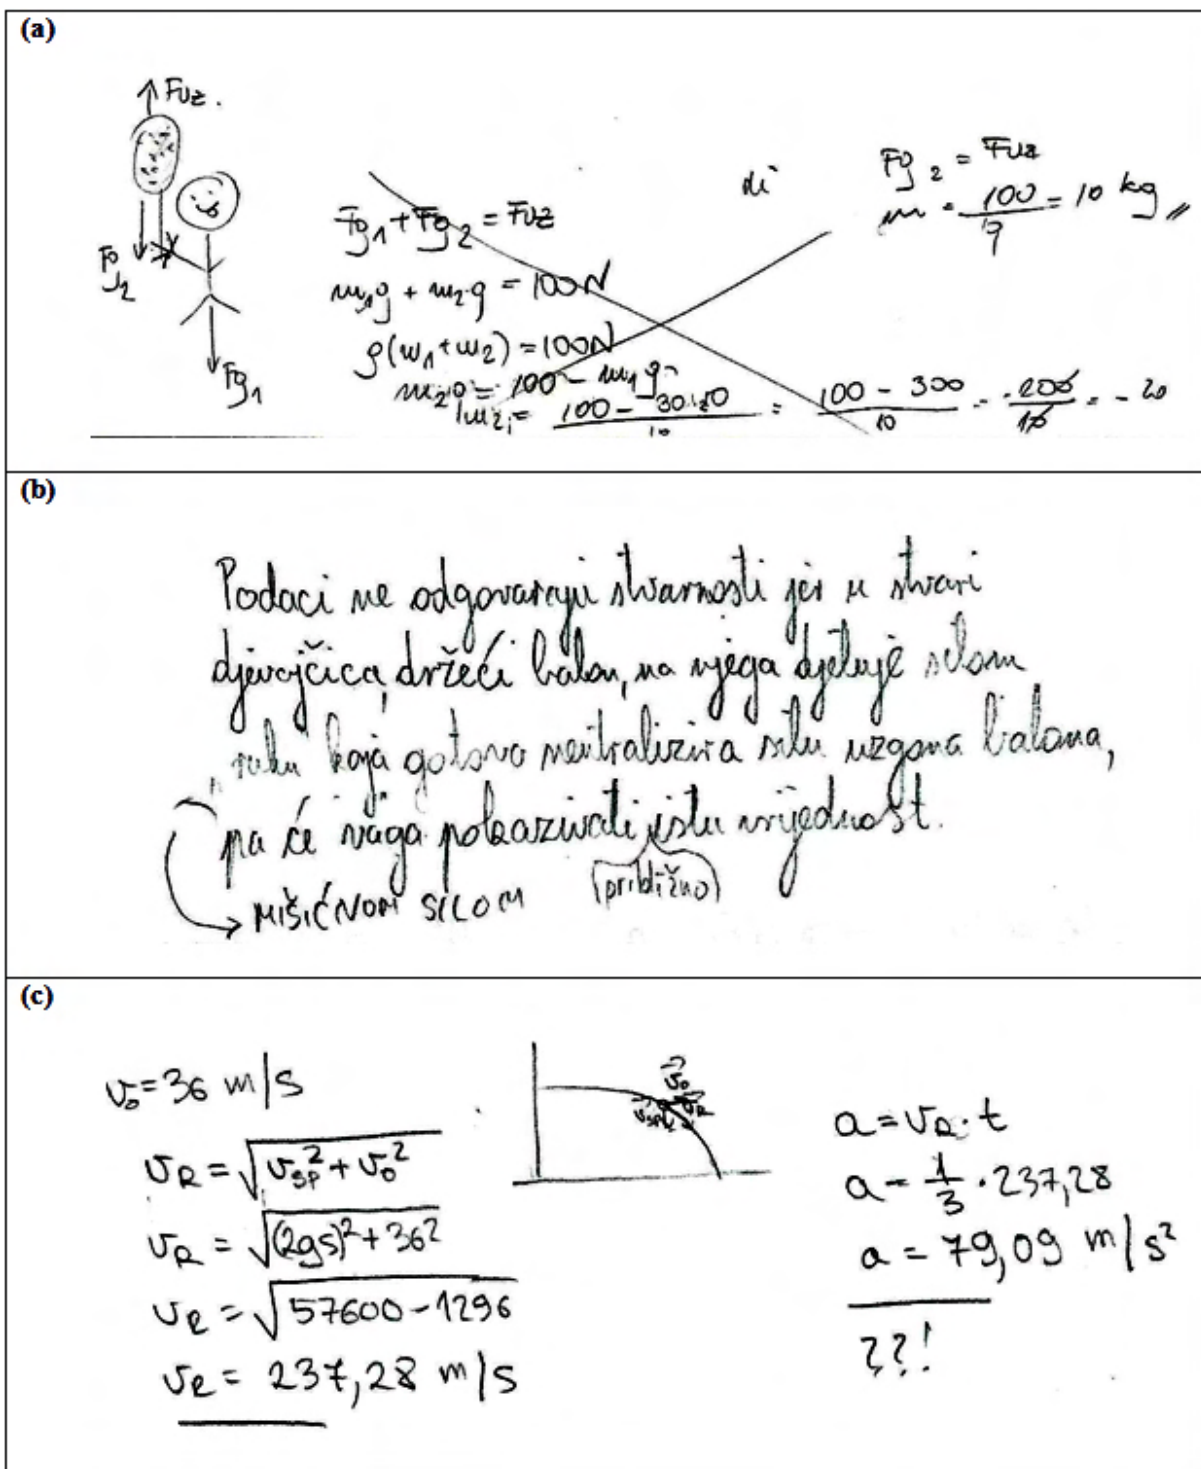 (a)
Fuz.
Fg2
Fg1
Fg1 + Fg2 = Fuz
m1g + m2g = 100N
g(m1+m2) = 100N
m2g = 100 - m1g
100 - 300
10
= 100 - 300 / 10 = -200 / 10 = -20
ili
Fg2 = Fuz
m = 100 / g = 10 kg
(b)
Podaci ne odgovaraju stvarnosti jer u stvari
djevojčica, držeći balon, na njega djeluje silom
ruku koja gotovo neutralizira silu uzgona balona,
pa će vaga pokazivati istu vrijednost.
(približno)
MIŠIĆNOM SILOM
(c)
v₀ = 36 m/s
vR = √(vsp² + v₀²)
vR = √((2gs)² + 36²)
vR = √(57600 - 1296)
vR = 237,28 m/s
v₀
vR
vsp
a = vR · t
a = 1/3 · 237,28
a = 79,09 m/s²
??!